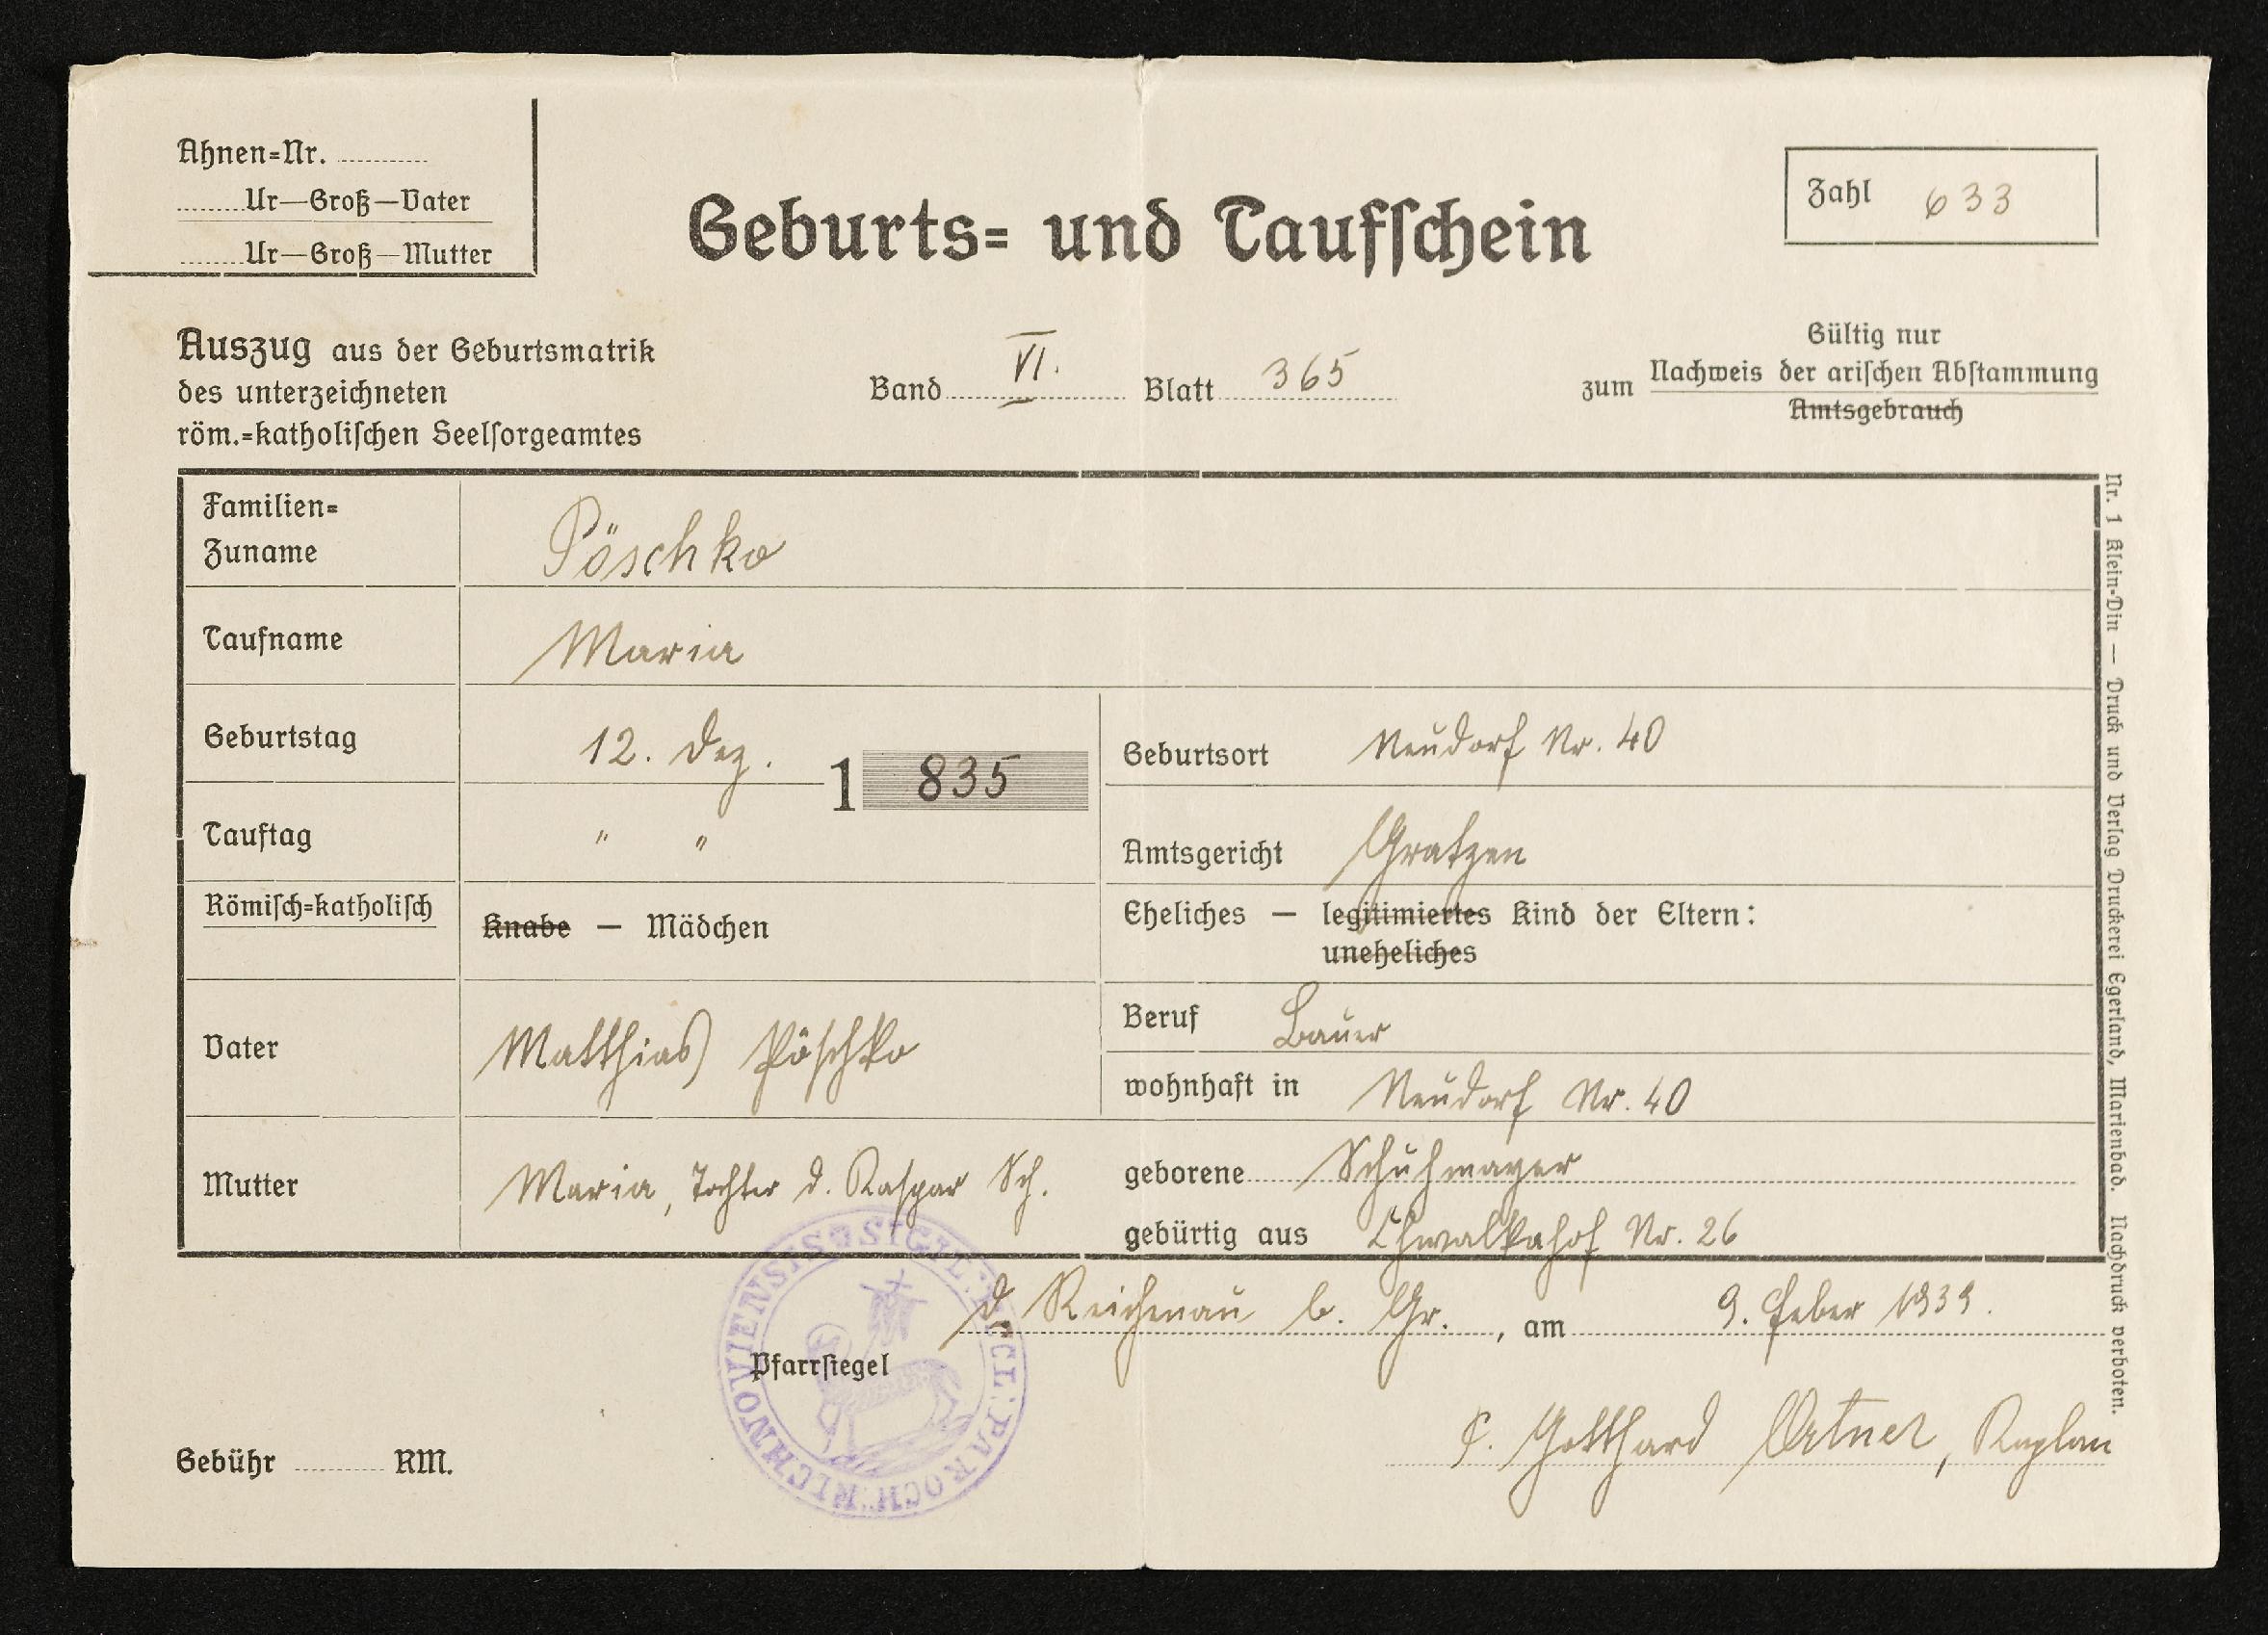 Ahnen=Nr. ............
........Ur—Groß—Vater
........Ur—Groß—Mutter
Geburts= und Taufschein
Zahl 633
Auszug aus der Geburtsmatrik
des unterzeichneten
röm.=katholischen Seelsorgeamtes
Band VI. Blatt 365
Gültig nur
zum Nachweis der arischen Abstammung
Amtsgebrauch
Familien=
Zuname Pöschko
Taufname Maria
Geburtstag 12. Dez. 1835 Geburtsort Neudorf Nr. 40
Tauftag " " Amtsgericht Gratzen
Römisch=katholisch Knabe — Mädchen Eheliches — legitimiertes Kind der Eltern:
uneheliches
Vater Matthias Pöschko Beruf Bauer
wohnhaft in Neudorf Nr. 40
Mutter Maria, Tochter d. Kaspar Sch. geborene Schuhmayer
gebürtig aus Chwalkahof Nr. 26
d. Reichenau b. Gr., am 9. Feber 1939.
Pfarrsiegel
SIGIL: ECCL: PAROCH: RICHNOVIENSIS
P. Gotthard Ortner, Kaplan
Gebühr ............ RM.
Nr. 1 Klein=Din — Druck und Verlag Druckerei Egerland, Marienbad. Nachdruck verboten.